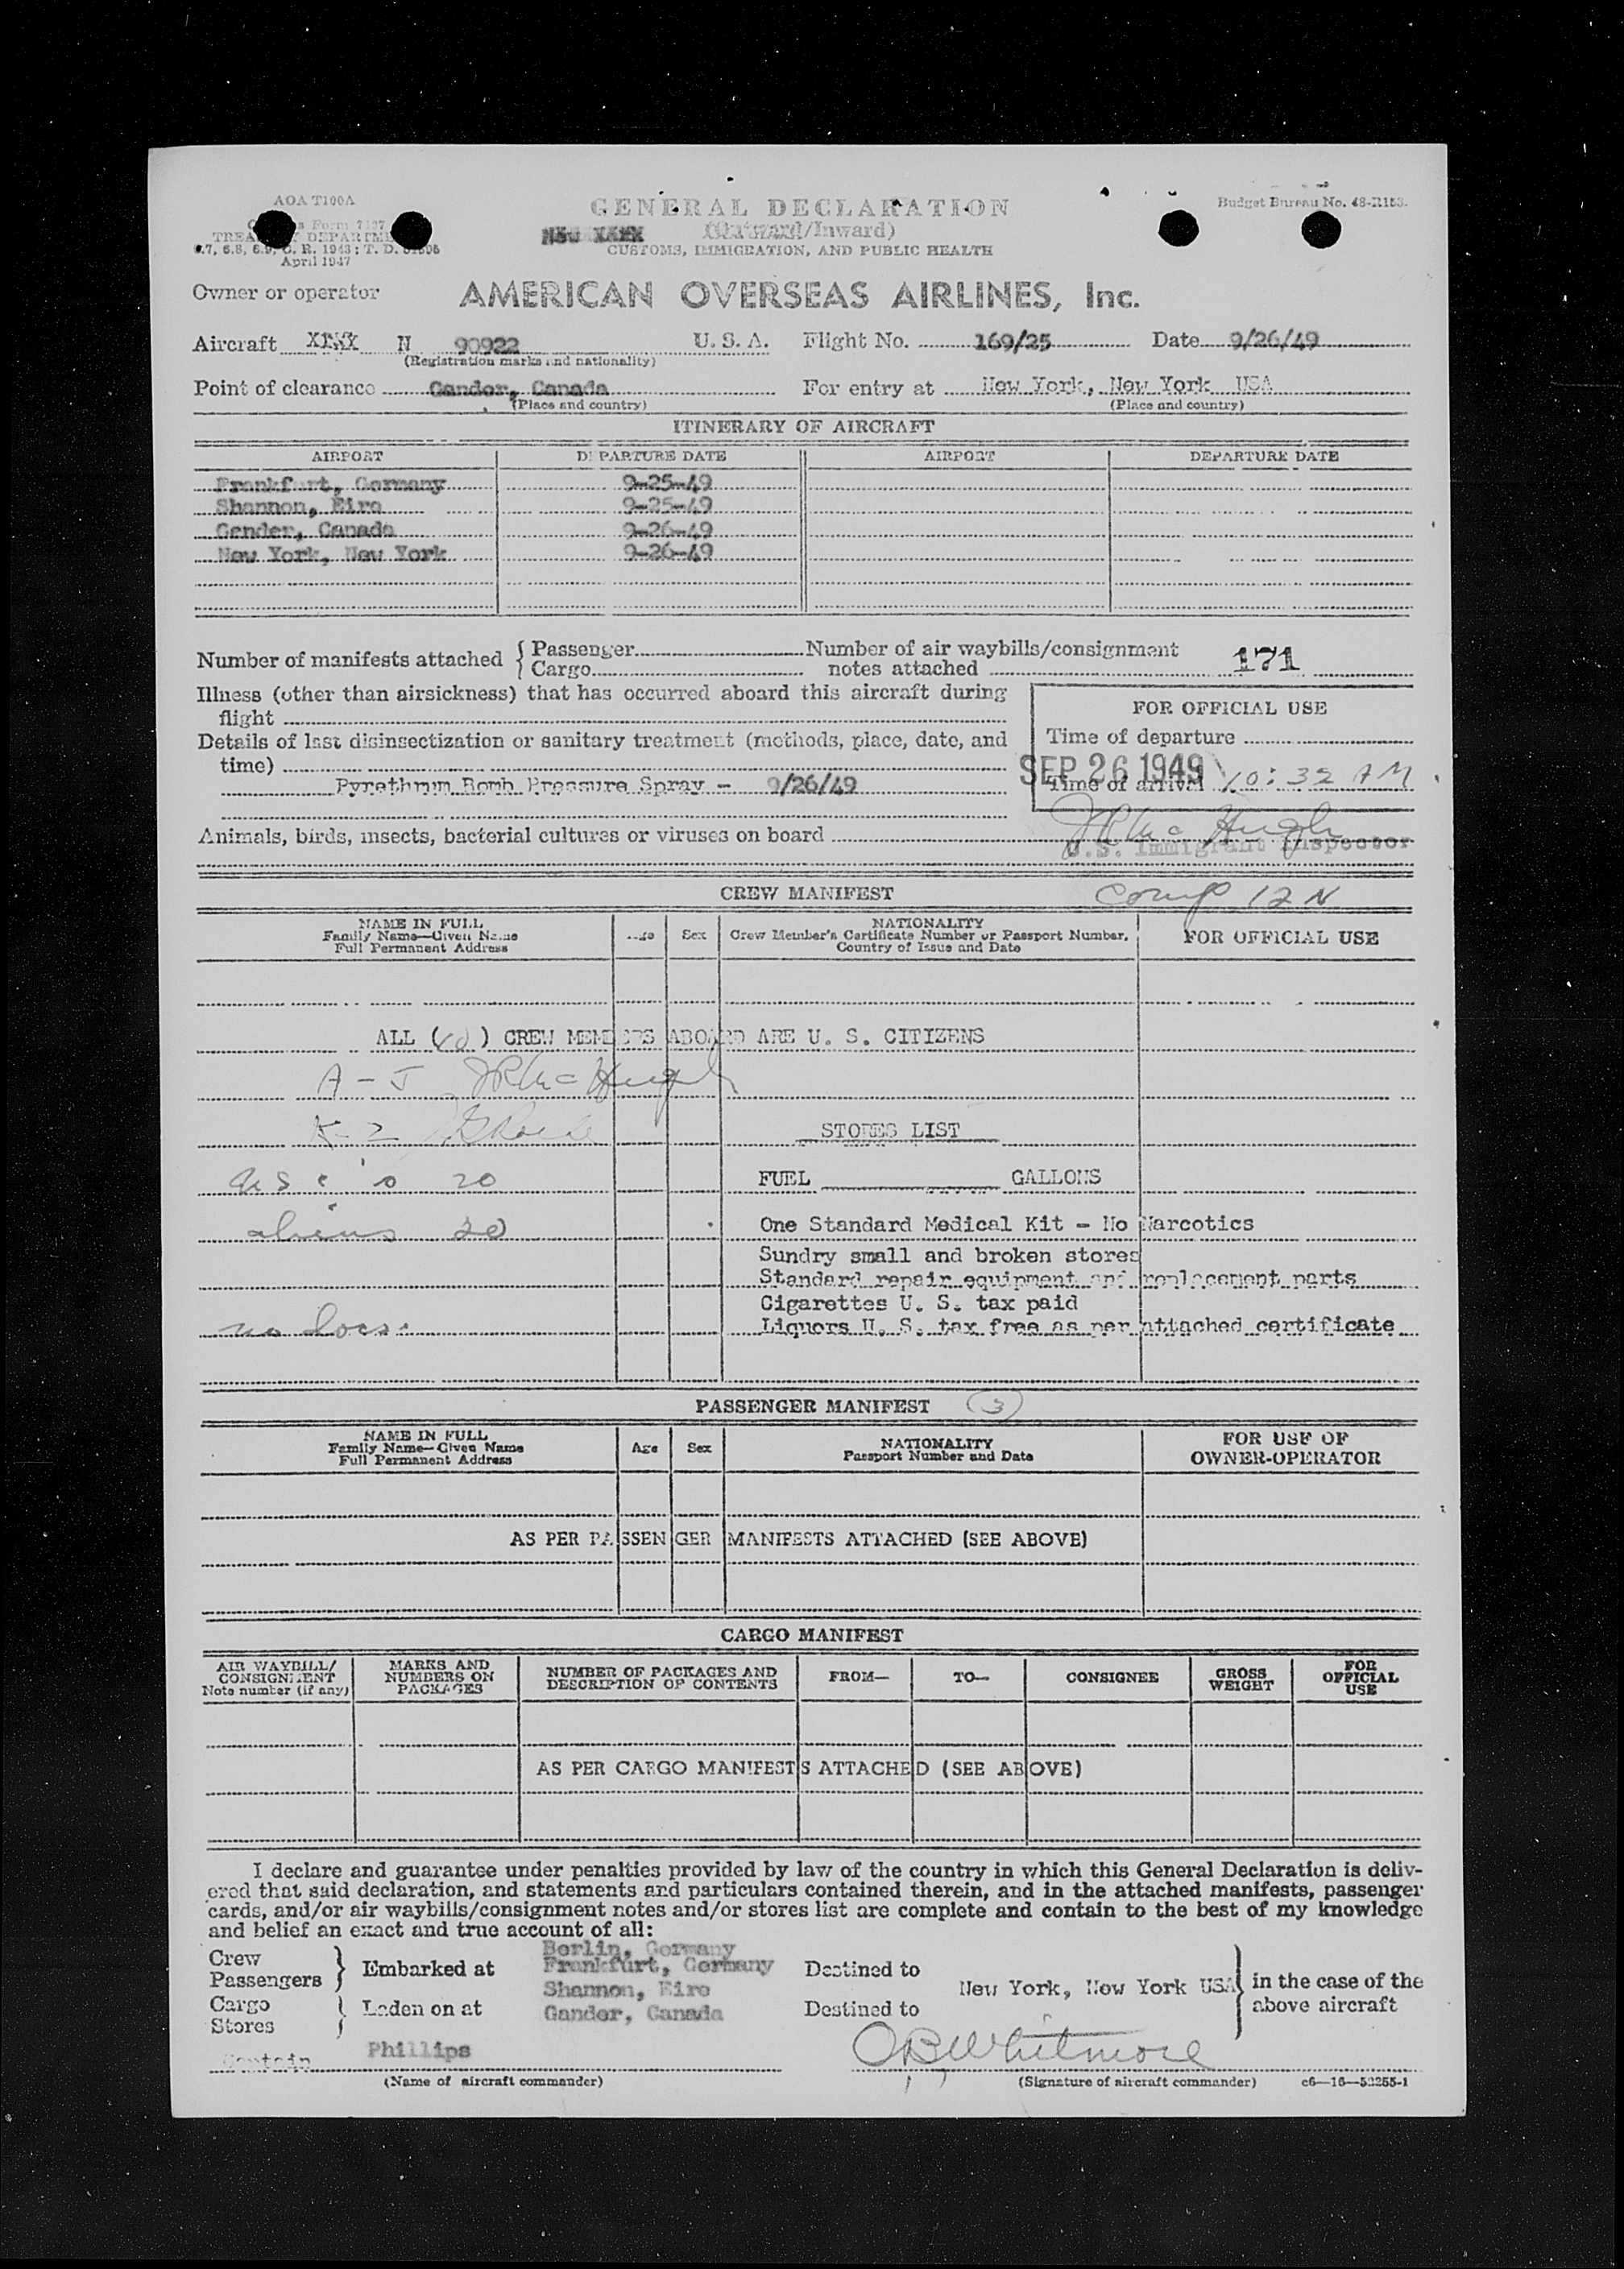 AOA T100A
GENERAL DECLARATION
Budget Bureau No. 48-R153.
Customs Form 7507
(Outward/Inward)
TREASURY DEPARTMENT
CUSTOMS, IMMIGRATION, AND PUBLIC HEALTH
April 1947
Owner or operator AMERICAN OVERSEAS AIRLINES, Inc.
Aircraft N 90922 U. S. A. Flight No. 169/25 Date 9/26/49
(Registration marks and nationality)
Point of clearance Gander, Canada For entry at New York, New York USA
(Place and country) (Place and country)
ITINERARY OF AIRCRAFT
AIRPORT DEPARTURE DATE AIRPORT DEPARTURE DATE
Frankfurt, Germany 9-25-49
Shannon, Eire 9-25-49
Gander, Canada 9-26-49
New York, New York 9-26-49
Number of manifests attached { Passenger Number of air waybills/consignment
Cargo notes attached 171
Illness (other than airsickness) that has occurred aboard this aircraft during
flight
FOR OFFICIAL USE
Details of last disinsectization or sanitary treatment (methods, place, date, and
time)
Time of departure
SEP 26 1949
Pyrethrum Bomb Pressure Spray - 9/26/49
Time of arrival 10:32 AM
Animals, birds, insects, bacterial cultures or viruses on board
JR McHugh
U.S. Immigrant Inspector
CREW MANIFEST
Comp 12 N
NAME IN FULL
Family Name—Given Name
Full Permanent Address
Age Sex
NATIONALITY
Crew Member's Certificate Number or Passport Number,
Country of Issue and Date
FOR OFFICIAL USE
ALL ( ) CREW MEMBERS ABOARD ARE U. S. CITIZENS
A - J JR McHugh
K-Z
STORES LIST
USC's 20
FUEL GALLONS
aliens 20
One Standard Medical Kit - No Narcotics
Sundry small and broken stores
Standard repair equipment and replacement parts
Cigarettes U. S. tax paid
no docs.
Liquors U. S. tax free as per attached certificate
PASSENGER MANIFEST (3)
NAME IN FULL
Family Name—Given Name
Full Permanent Address
Age Sex
NATIONALITY
Passport Number and Date
FOR USE OF
OWNER-OPERATOR
AS PER PASSENGER MANIFESTS ATTACHED (SEE ABOVE)
CARGO MANIFEST
AIR WAYBILL/
CONSIGNMENT
Note number (if any)
MARKS AND
NUMBERS ON
PACKAGES
NUMBER OF PACKAGES AND
DESCRIPTION OF CONTENTS
FROM—
TO—
CONSIGNEE
GROSS
WEIGHT
FOR
OFFICIAL
USE
AS PER CARGO MANIFESTS ATTACHED (SEE ABOVE)
I declare and guarantee under penalties provided by law of the country in which this General Declaration is deliv-
ered that said declaration, and statements and particulars contained therein, and in the attached manifests, passenger
cards, and/or air waybills/consignment notes and/or stores list are complete and contain to the best of my knowledge
and belief an exact and true account of all:
Crew
Passengers } Embarked at
Cargo
Stores } Laden on at
Berlin, Germany
Frankfurt, Germany
Shannon, Eire
Gander, Canada
Destined to
Destined to
New York, New York USA } in the case of the
above aircraft
Captain Phillips
OB Whitmore
(Name of aircraft commander)
(Signature of aircraft commander) c6—16—52255-1